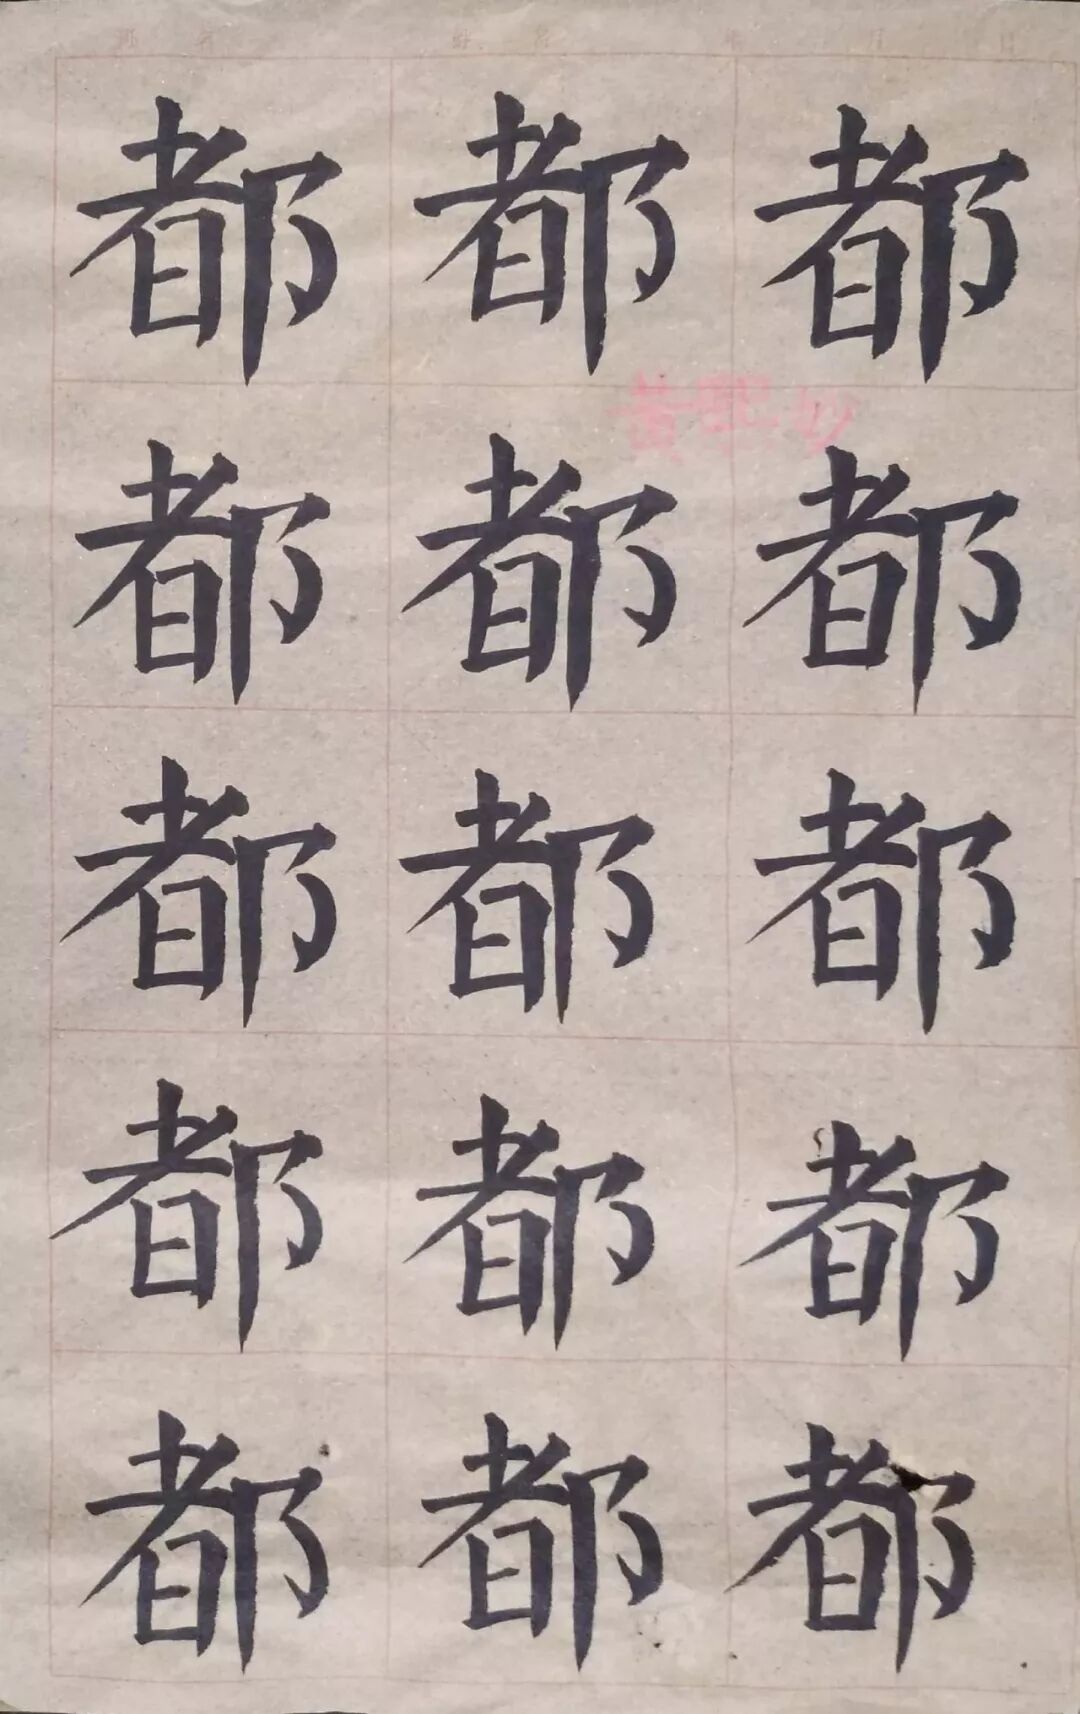 都都都
都都都
都都都
都都都
都都都